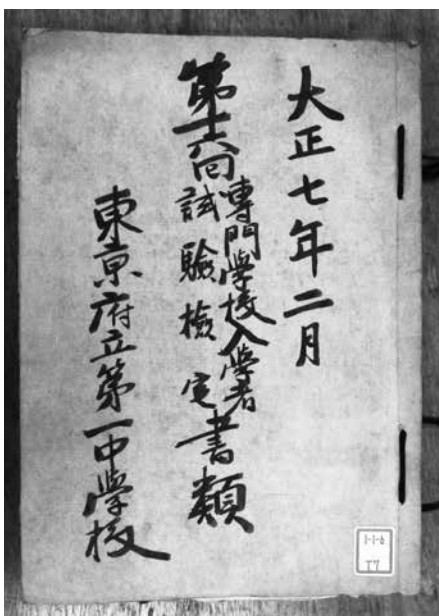 大正七年二月
第十六回専門學校入學者
試驗檢定書類
東京府立第一中學校
1-1-6
17